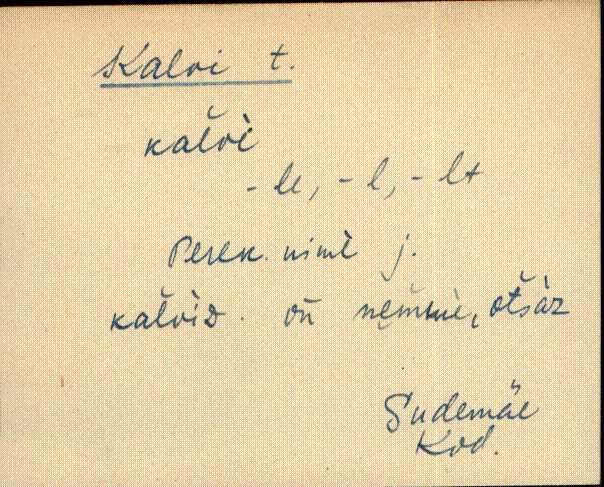 Kalvi t.
kal̆vì
-le, -l, -lt
Perek. nimè j.
kal̆vìᴅ. on̆ nem̆mè, otšàz
Sudemäe
Kod.